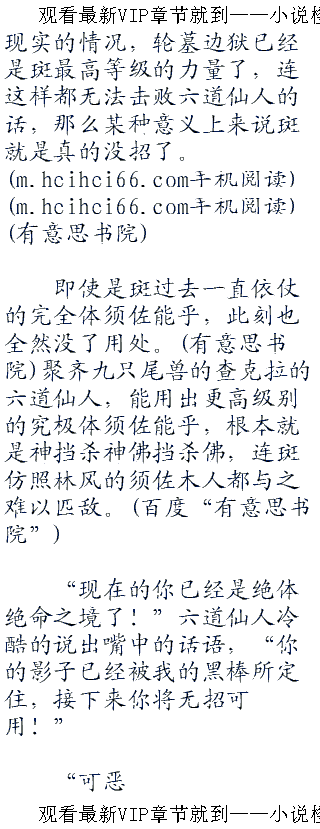 观看最新VIP章节就到——小说检
现实的情况，轮墓边狱已经
是斑最高等级的力量了，连
这样都无法击败六道仙人的
话，那么某种意义上来说斑
就是真的没招了。
(m.hcihci66.com手机阅读)
(m.hcihci66.com手机阅读)
(有意思书院)
即使是斑过去一直依仗
的完全体须佐能乎，此刻也
全然没了用处。(有意思书
院)聚齐九只尾兽的查克拉的
六道仙人，能用出更高级别
的究极体须佐能乎，根本就
是神挡杀神佛挡杀佛，连斑
仿照林风的须佐木人都与之
难以匹敌。(百度“有意思书
院”)
“现在的你已经是绝体
绝命之境了！”六道仙人冷
酷的说出嘴中的话语，“你
的影子已经被我的黑棒所定
住，接下来你将无招可
用！”
“可恶
观看最新VIP章节就到——小说检